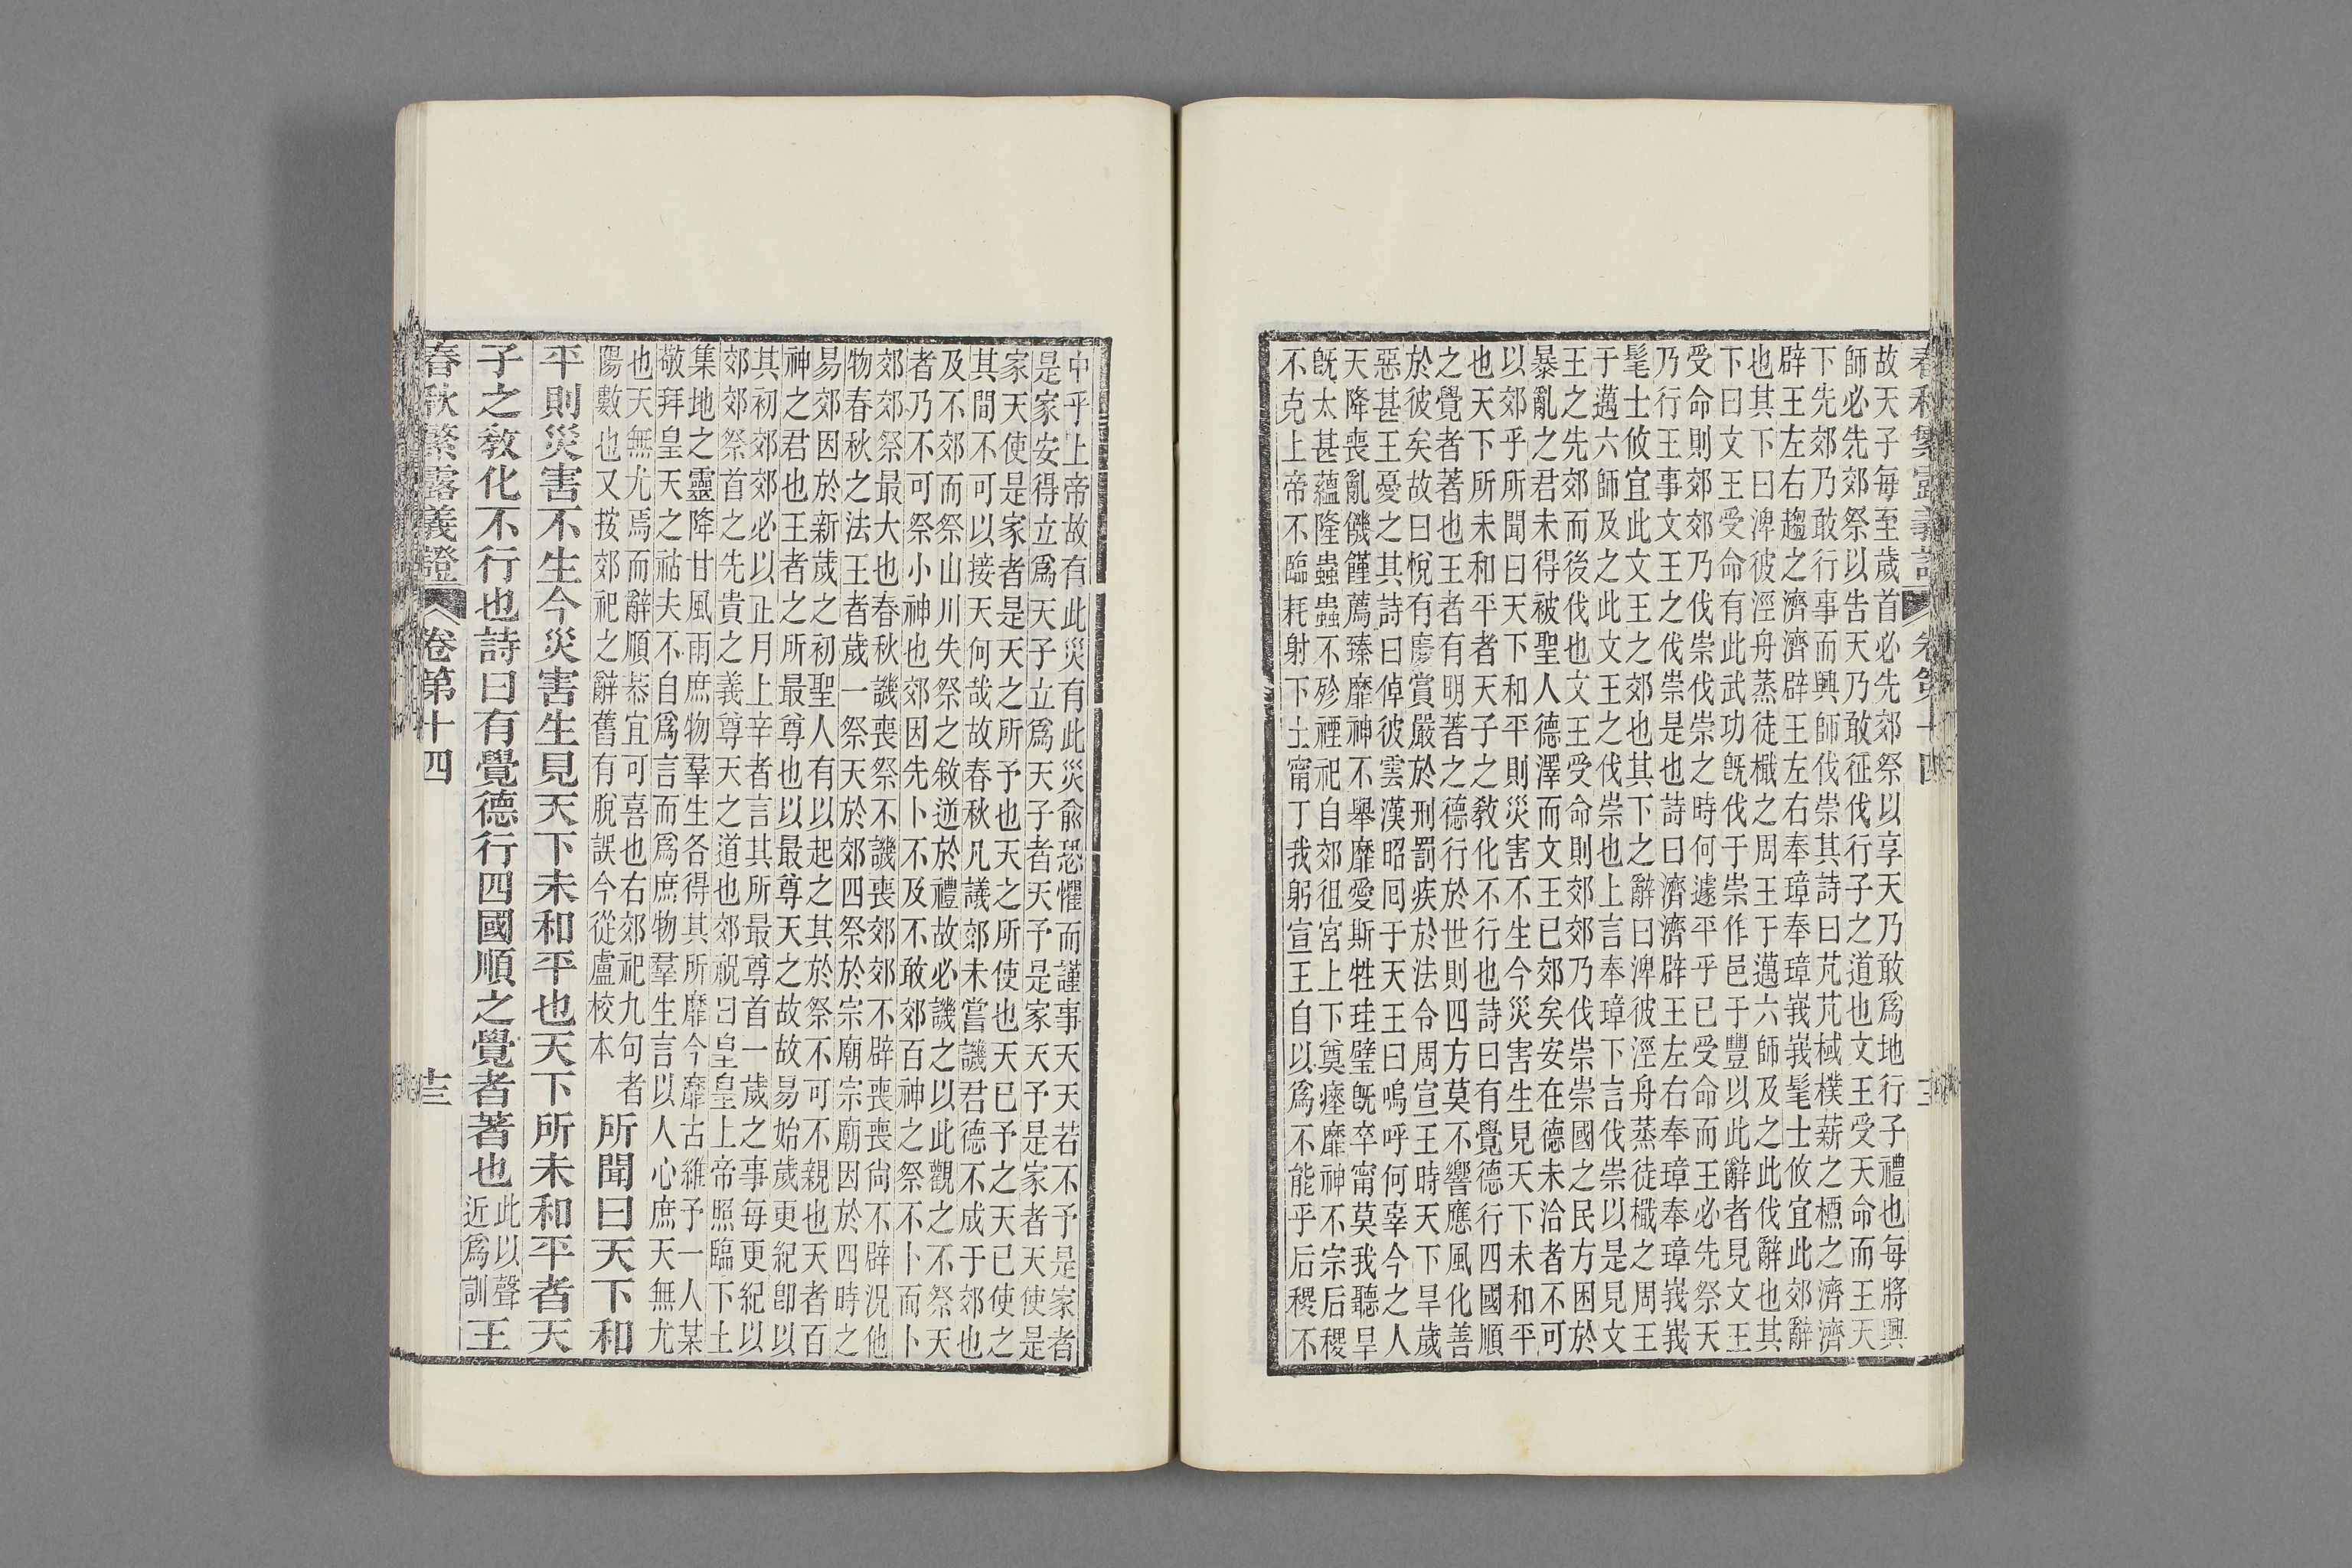 春秋繁露義證 卷第十四
故天子每至歲首必先郊祭以享天乃敢爲地行子禮也每將興
師必先郊祭以告天乃敢征伐行子之道也文王受天命而王天
下先郊乃敢行事而興師伐崇其詩曰芃芃棫樸薪之槱之濟濟
辟王左右趨之濟濟辟王左右奉璋奉璋峩峩髦士攸宜此郊辭
也其下曰淠彼涇舟蒸徒檝之周王于邁六師及之此伐辭也其
下曰文王受命有此武功旣伐于崇作邑于豐以此辭者見文王
受命則郊郊乃伐崇伐崇之時何遽平乎已受命而王必先祭天
乃行王事文王之伐崇是也詩曰濟濟辟王左右奉璋奉璋峩峩
髦士攸宜此文王之郊也其下之辭曰淠彼涇舟蒸徒檝之周王
于邁六師及之此文王之伐崇也上言奉璋下言伐崇以是見文
王之先郊而後伐也文王受命則郊郊乃伐崇崇國之民方困於
暴亂之君未得被聖人德澤而文王已郊矣安在德未洽者不可
以郊乎所聞曰天下和平則災害不生今災害生見天下未和平
也天下所未和平者天子之敎化不行也詩曰有覺德行四國順
之覺者著也王者有明著之德行於世則四方莫不響應風化善
於彼矣故曰悅有慶賞嚴於刑罰疾於法令周宣王時天下旱歲
惡甚王憂之其詩曰倬彼雲漢昭囘于天王曰嗚呼何辜今之人
天降喪亂饑饉薦臻靡神不舉靡愛斯牲珪璧旣卒甯莫我聽旱
旣太甚蘊隆蟲蟲不殄禋祀自郊徂宮上下奠瘞靡神不宗后稷
不克上帝不臨耗射下土甯丁我躬宣王自以爲不能乎后稷不
中乎上帝故有此災有此災兪恐懼而謹事天天若不予是家者
是家安得立爲天子立爲天子者天予是家天予是家者天使是
家天使是家者是天之所予也天之所使也天已予之天已使之
其間不可以接天何哉故春秋凡議郊未嘗譏君德不成于郊也
及不郊而祭山川失祭之敘逆於禮故必譏之以此觀之不祭天
者乃不可祭小神也郊因先卜不及不敢郊百神之祭不卜而卜
郊郊祭最大也春秋譏喪祭不譏喪郊郊不辟喪喪尙不辟況他
物春秋之法王者歲一祭天於郊四祭於宗廟宗廟因於四時之
易郊因於新歲之初聖人有以起之其於祭不可不親也天者百
神之君也王者之所最尊也以最尊天之故故易始歲更紀卽以
其初郊郊必以正月上辛者言其所最尊首一歲之事每更紀以
郊郊祭首之先貴之義尊天之道也郊祝曰皇皇上帝照臨下土
集地之靈降甘風雨庶物羣生各得其所靡今靡古維予一人某
敬拜皇天之祜夫不自爲言而爲庶物羣生言以人心庶天無尤
也天無尤焉而辭順恭宜可喜也右郊祀九句者
陽數也又按郊祀之辭舊有脫誤今從盧校本
所聞曰天下和
平則災害不生今災害生見天下未和平也天下所未和平者天
子之敎化不行也詩曰有覺德行四國順之覺者著也
此以聲
近爲訓
王
春秋繁露義證 卷第十四 十三